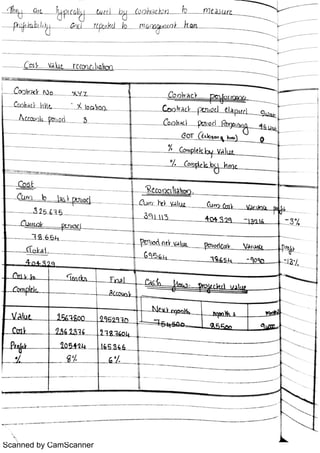 They are typically carried by contractors to measure
profitability and reported to management team
Cost value reconciliation
Contract No XYZ
Contract title X location
Accounts period 3
Contract performance
Contract period elapsed
Contract period Remaining
EOT
0
% Complete by Value
% Complete by time
Cost
Cum to last period
325635
Current period
78654
Total
404329
Reconciliation
Cum. net value Cum Cost Variance profit
391113 404329 -13216 -3%
Period net value Period Cost Variance Profit
69564 78654 -9090 -13%
Cost to Complete Tender Final Account
Value 2567500 2952970
Cost 2362376 2787604
Profit 205424 165365
% 8% 6%
Cash flow: projected value
Next month month 2
754500 25500
Scanned by CamScanner